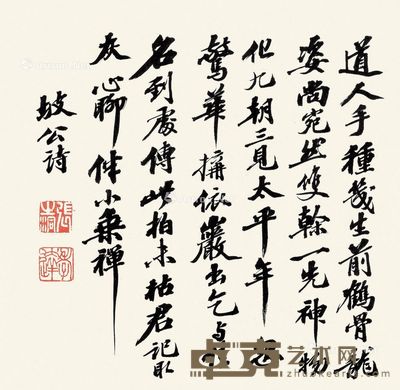 道人手種幾生前鶴骨龍
姿尚宛然雙幹一先神物
化九朝三見太平年忽
驚華搆依巖出乞與佳
名到處傳此柏未枯君記取
灰心聊伴小乘禪
坡公詩
卓克艺术网